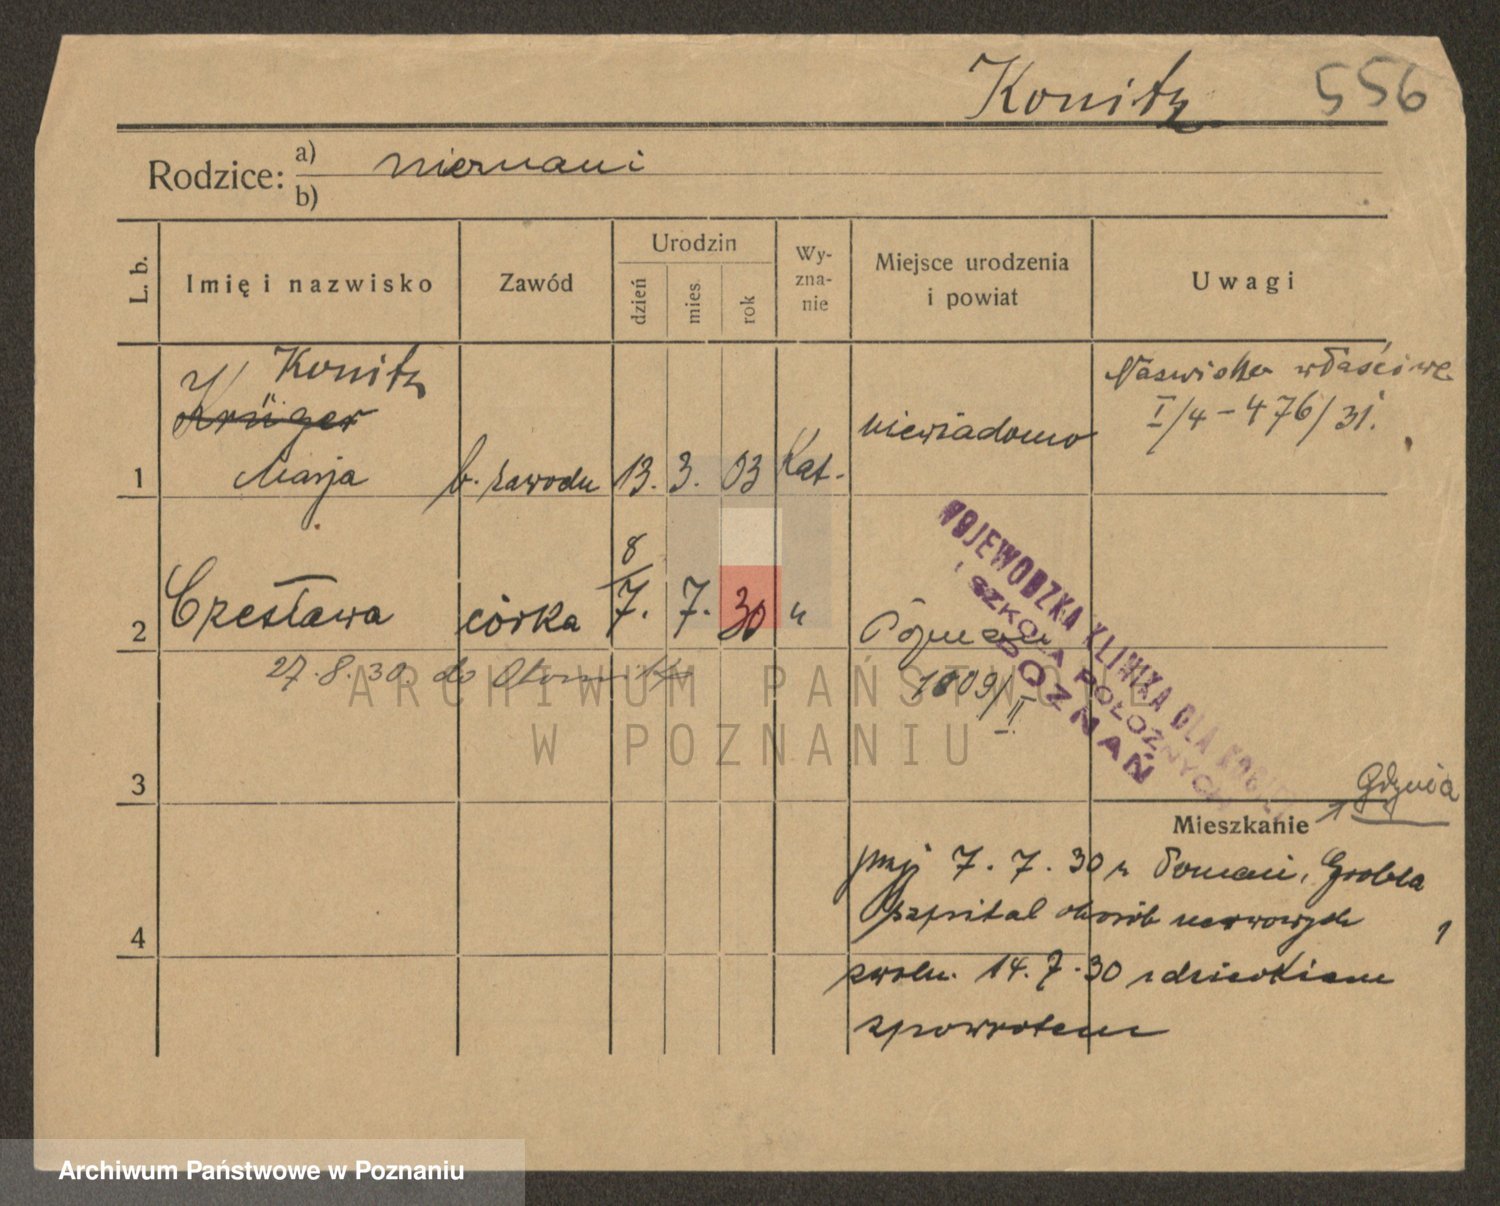 Konitz 556
Rodzice: a) nieznani
b)
L. b. Imię i nazwisko Zawód Urodzin dzień mies. rok Wy-zna-nie Miejsce urodzenia i powiat Uwagi
Konitz Nazwisko właściwe
Krüger I/4-476/31.
1 Marja b. zawodu 13. 3. 03 Kat. niewiadomo
8
2 Czesława córka 7. 7. 30 " Poznań
27.8.30 do 1809/II
WOJEWÓDZKA KLINIKA DLA KOBIET
I SZKOŁA POŁOŻNYCH
POZNAŃ
3
Gdynia
Mieszkanie
7. 7. 30 z Grobla
4 szpital chorób nerwowych 1
zwoln. 14. 7. 30 z dzieckiem
zpowrotem
ARCHIWUM PAŃSTWOWE
W POZNANIU
Archiwum Państwowe w Poznaniu